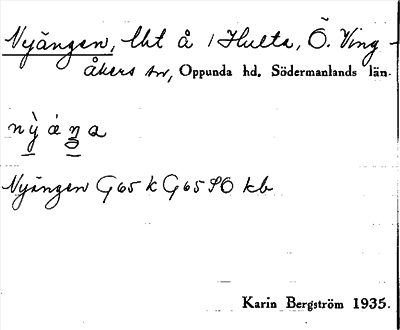 Nyängen, lht å 1 Hulta, Ö. Ving-
åkers sn, Oppunda hd. Södermanlands län.
Nyängen G65 k G65 SO kb
Karin Bergström 1935.